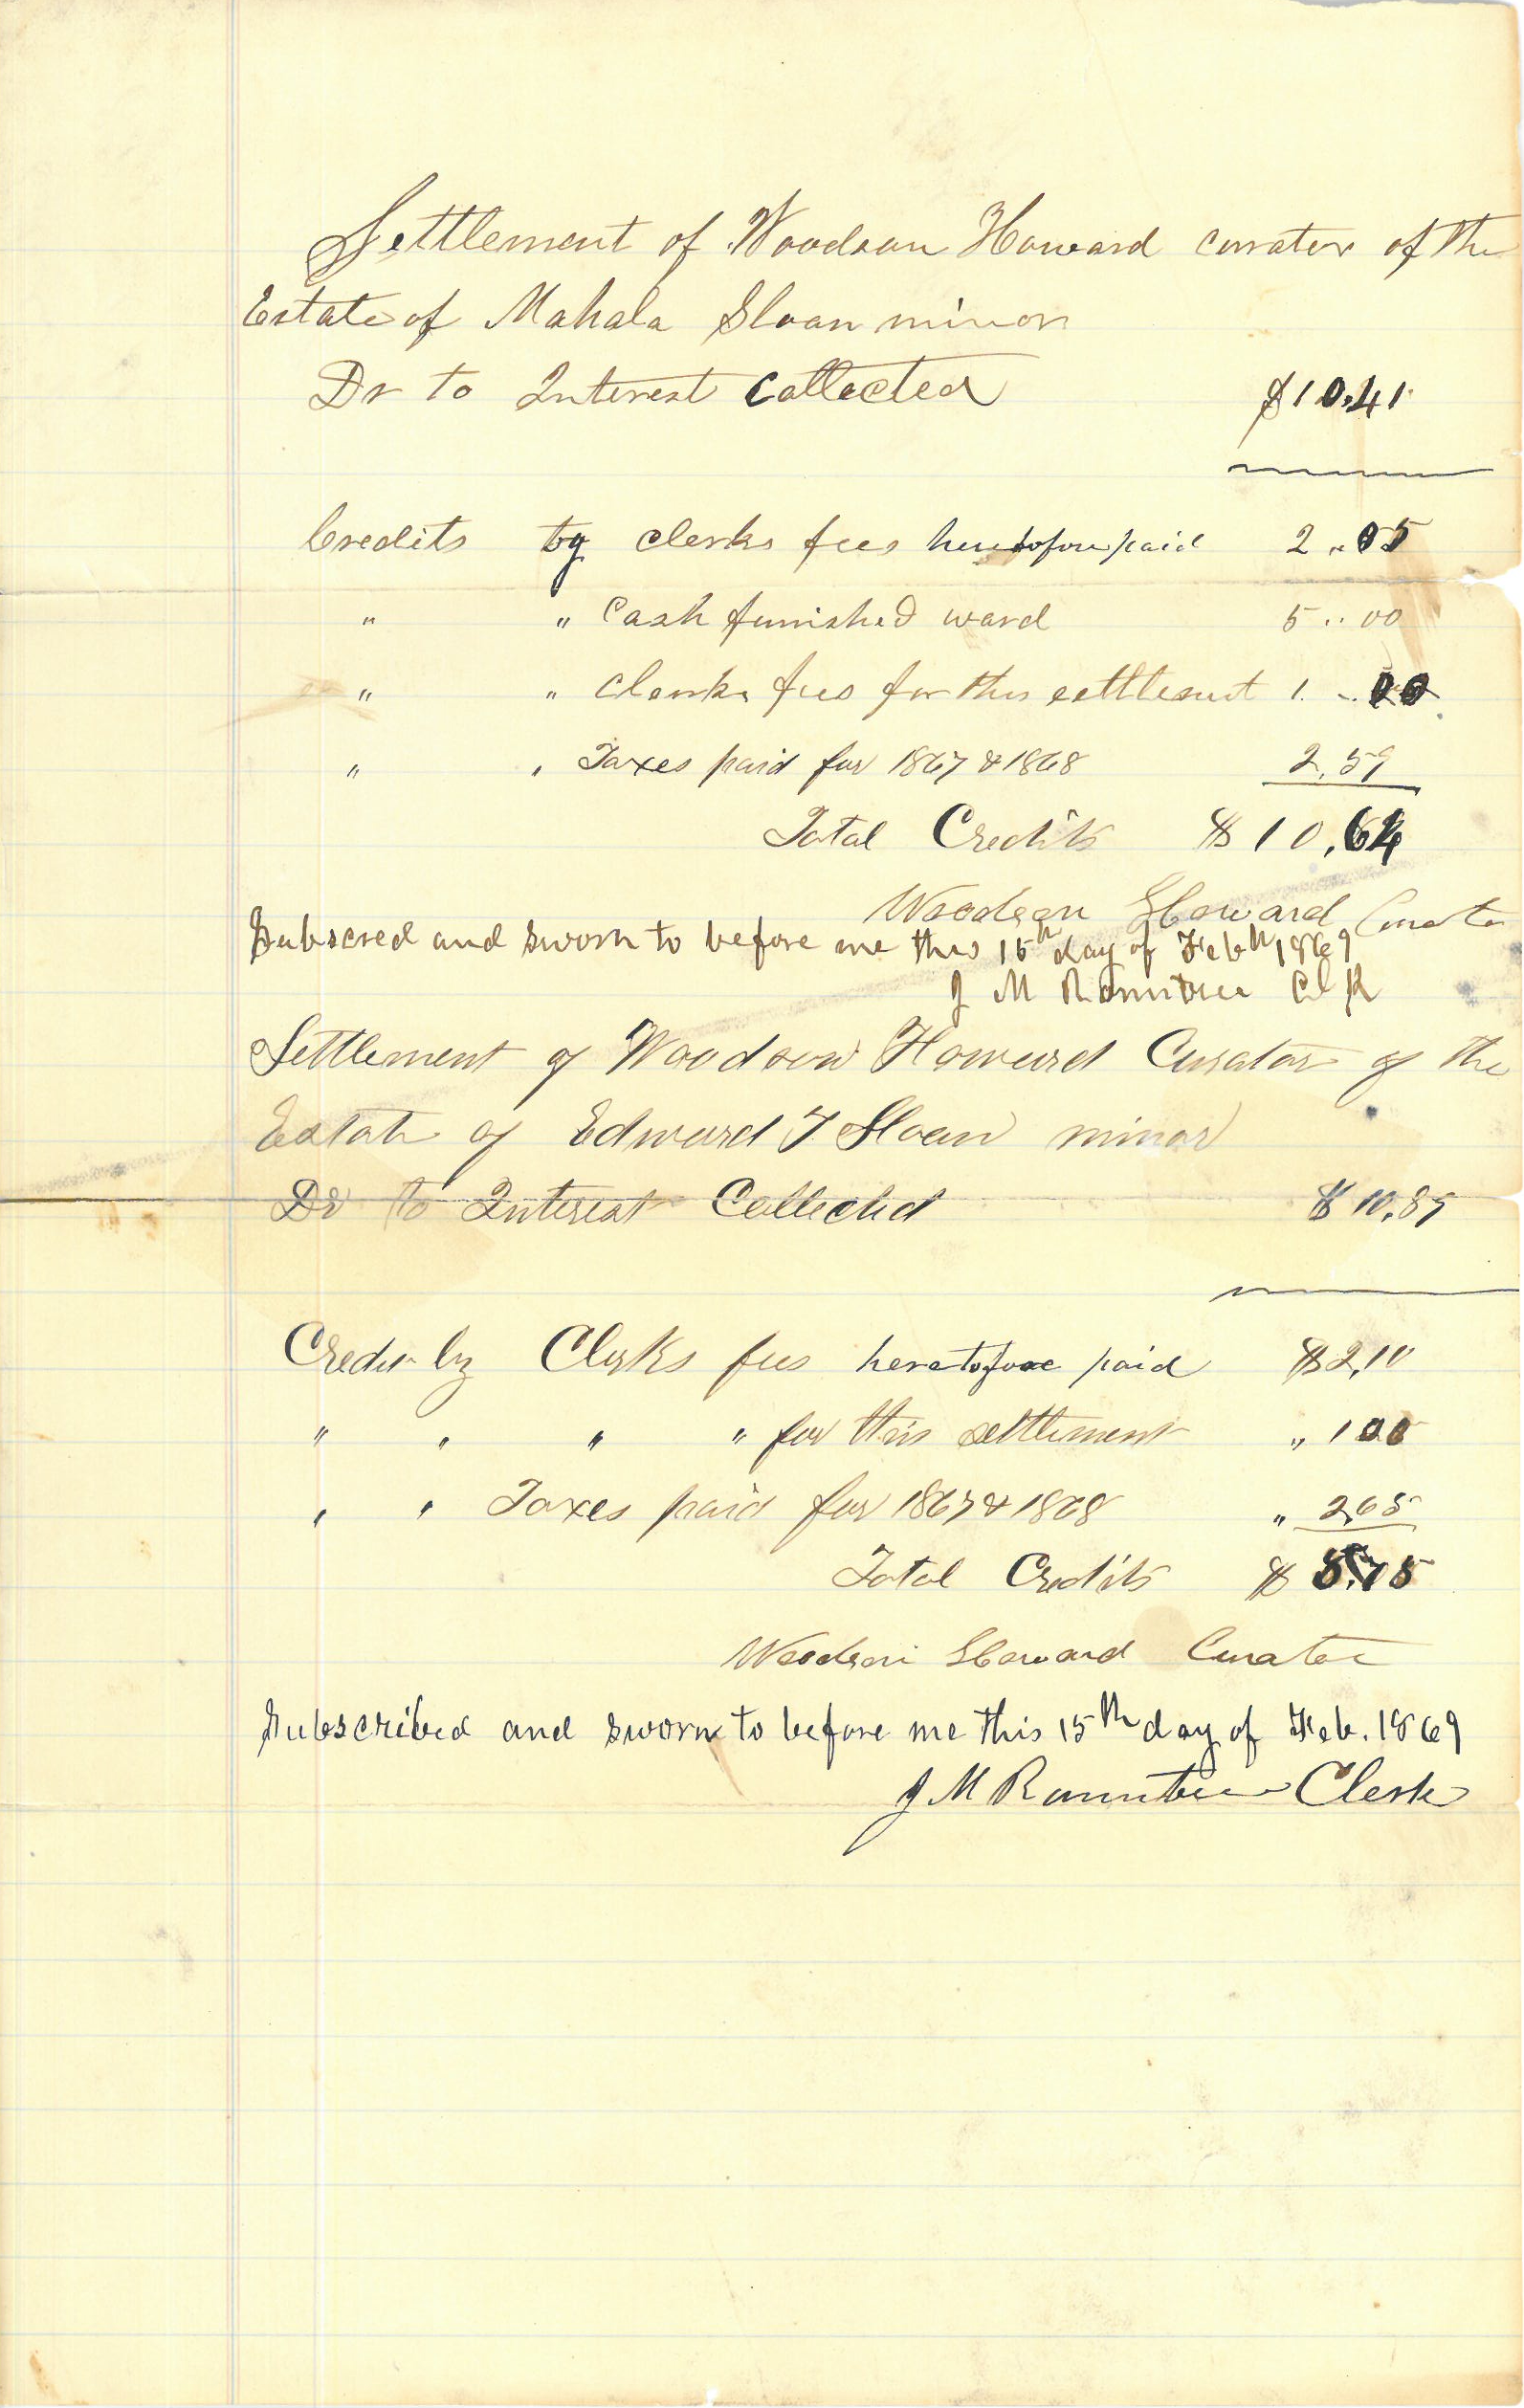 Settlement of Woodson Howard curator of the
Estate of Mahala Sloan minor
Dr to Interest Collected $10.41
Credits by Clerks fees heretofore paid 2..05
" " Cash furnished ward 5..00
" " Clerks fees for this settlement 1...00
" " Taxes paid for 1867 & 1868 2.59
Total Credits $10.64
Woodson Howard Curator
Subscred and sworn to before me this 15th day of Feb 1869
J M Rountree Clk
Settlement of Woodson Howard Curator of the
Estate of Edward T Sloan minor
Dr to Interest Collected $10.89
Credit by Clerks fees heretofore paid $2,10
" " " " for this settlement " 1.00
" " Taxes paid for 1867 & 1868 " 2,65
Total Credits $ 5.75
Woodson Howard Curator
Subscribed and sworn to before me this 15th day of Feb. 1869
J M Rountree Clerk